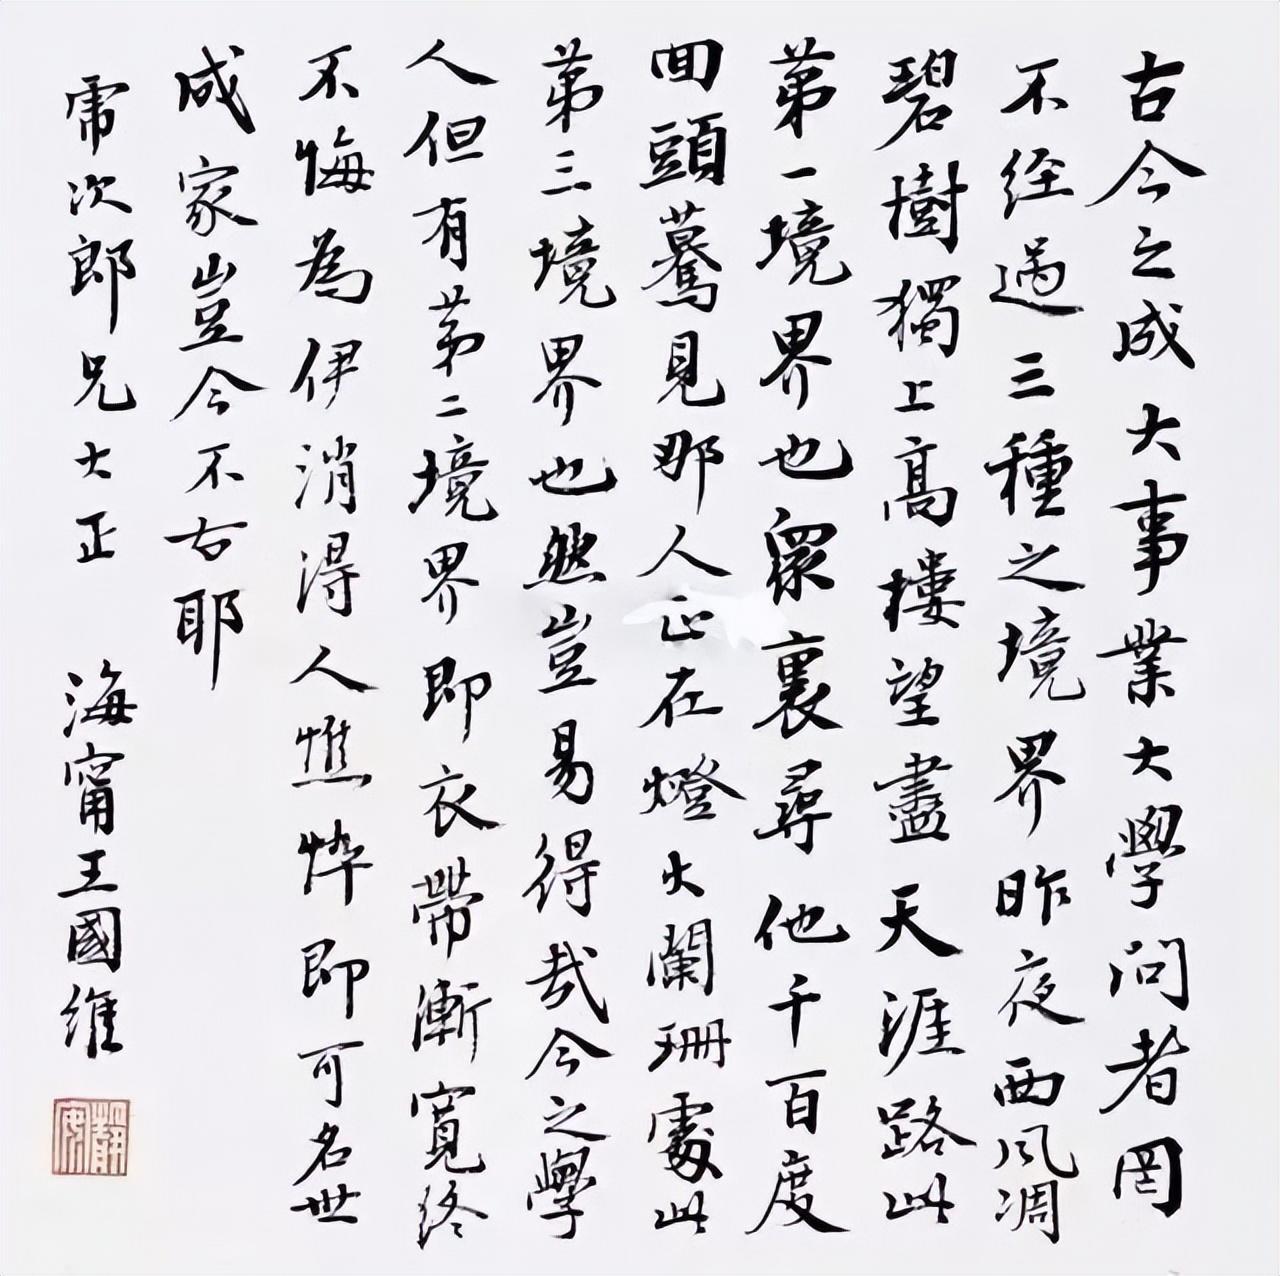 古今之成大事業大學問者罔
不經過三種之境界昨夜西風凋
碧樹獨上高樓望盡天涯路此
第一境界也衆裏尋他千百度
回頭驀見那人正在燈火闌珊處此
第三境界也然豈易得哉今之學
人但有第二境界即衣帶漸寬終
不悔為伊消得人憔悴即可名世
成家豈今不右耶
次郎兄大正 海寧王國維
靜安